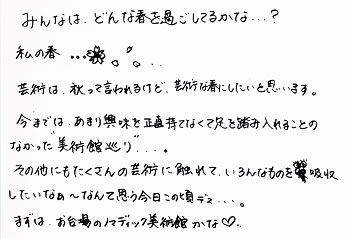 みんなは、どんな春を過ごしてるかな...?
私の春 ...
芸術は、秋って言われるけど、芸術な春にしたいと思います。
今までは、あまり興味を正直持てなくて足を踏み入れることの
なかった"美術館巡り"...。
その他にもたくさんの芸術に触れて、いろんなものを吸収
したいなぁ〜なんて思う今日この頃デス...。
まずは、お台場のノマディック美術館かな♡..